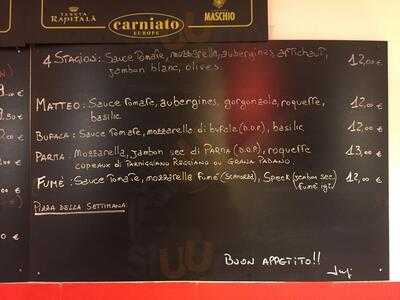 TENUTA
RAPITALÀ
carniato
EUROPE
MASCHIO
4 STAGIONI: Sauce Tomate, mozzarella, aubergines, artichaut, 12,00 €
jambon blanc, olives.
MATTEO: Sauce Tomate, aubergines, gorgonzola, roquette, 12,00 €
basilic
BUFALA: Sauce Tomate, mozzarella di bufala (D.O.P.), basilic 12,00 €
PARMA: Mozzarella, jambon sec di PARMA (D.O.P), roquette 13,00 €
copeaux di PARMIGGIANO REGGIANO OU GRANA PADANO.
FUMÉ: Sauce Tomate, mozzarella FUMÉ (SCAMORZA), SPECK (jambon sec 12,00 €
fumé igp)
PIZZA DELLA SETTIMANA:
BUON APPETITO!!